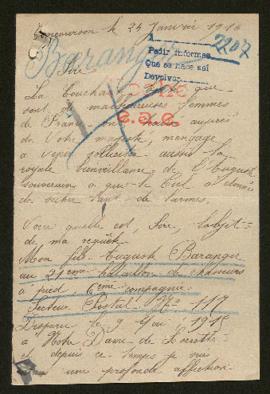 le 24 Janvier 1916
Barangé
2207
Pedir informes
Que se hace así
Devolver
Sire
La touchante que
ont de malheureuses femmes
de France auprès
de Votre majesté,
à venir solliciter aussi la
royale bienveillance de l'Auguste
souverain à qui le Ciel a donné
de sécher tant de larmes.
Voici quelle est, Sire, l'objet
de ma requête.
Mon fils Auguste Baranger
au bataillon de chasseurs
à pied 6ème compagnie
Secteur Postal No 117
Disparu le 9 Mai 1915
à Notre Dame de Lorette
et depuis ce temps je suis
une profonde affliction.